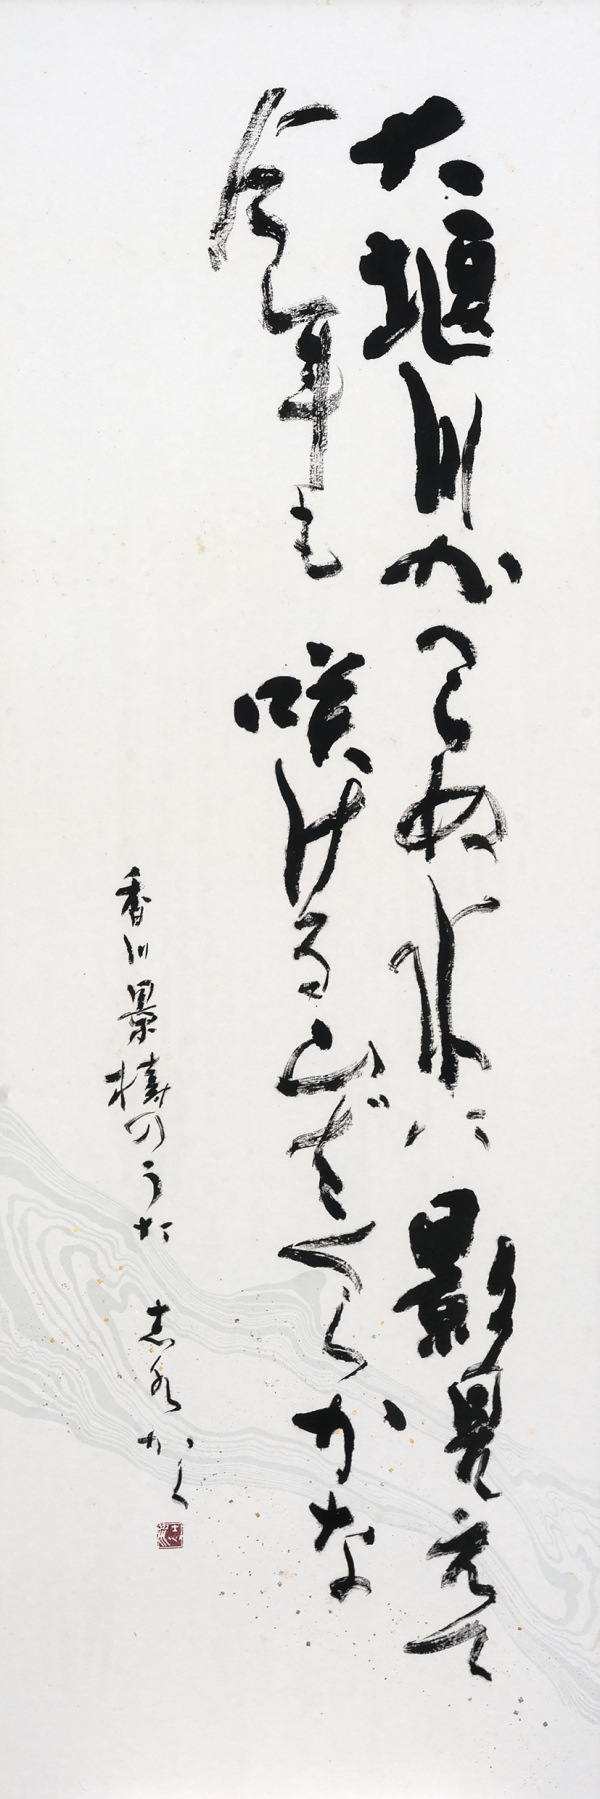 大堰川かへらぬ水に影見えて
今年も咲ける山ざくらかな
香川景樹のうた 志水かく